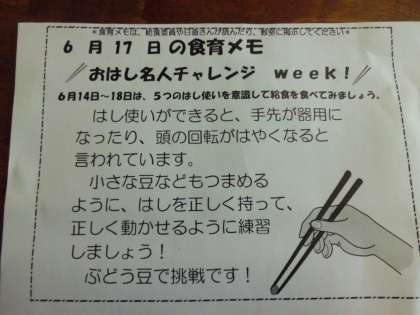 *食育メモは、給食委員や日直さんが読んだり、教室に掲示してください*
6月17日の食育メモ
おはし名人チャレンジ week!
6月14日~18日は、5つのはし使いを意識して給食を食べてみましょう。
はし使いができると、手先が器用に
なったり、頭の回転がはやくなると
言われています。
小さな豆などもつまめる
ように、はしを正しく持って、
正しく動かせるように練習
しましょう!
ぶどう豆で挑戦です!